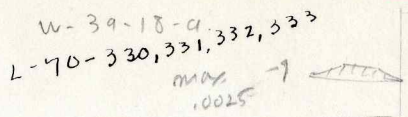 W-39-18-a
L-70-330, 331, 332, 333
max -9
.0025